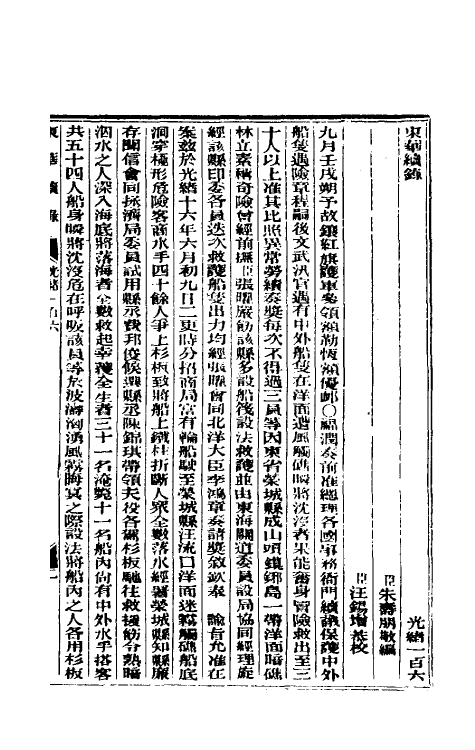 東華續錄
光緒一百六
臣朱壽朋敬編
臣汪錫增恭校
九月壬戌朔予故鑲紅旗護軍參領額勒恆額優卹○福潤奏前准總理各國事務衙門續議保護中外
船隻遇險章程嗣後文武汛官遇有中外船隻在洋面遭風觸礁瞬將沈沒者果能奮身冒險救出至三
十人以上准其比照異常勞績奏獎每次不得過三員等因東省榮城縣成山頭鎮鋣島一帶洋面暗礁
林立素稱奇險曾經前撫臣張曜嚴飭該縣多設船筏設法救護並由東海關道委員設局協同經理庭
經該縣印委各員迭次救護船隻出力均經張曜會同北洋大臣李鴻章奏請獎敘欽奉 諭旨允准在
案茲於光緒十六年六月初九日二更時分招商局富有輪船駛至榮城縣汪流口洋面迷霧觸礁船底
洞穿極形危險客商水手四十餘人爭上杉板致將船上鐵柱折斷人眾全數落水經署榮城縣知縣廉
存聞信會同拯濟局委員試用縣丞費邦俊候選縣丞陳錦琪帶領夫役各駕杉板馳往救援飭令熟暗
泅水之人深入海底將落海者全數救起幸獲全生者三十一名淹斃十一名船內尚有中外水手搭客
共五十四人船身瞬將沈沒危在呼吸該員等於波濤洶湧風霧晦冥之際設法將船內之人各用杉板
東華續錄 光緒一百六 一